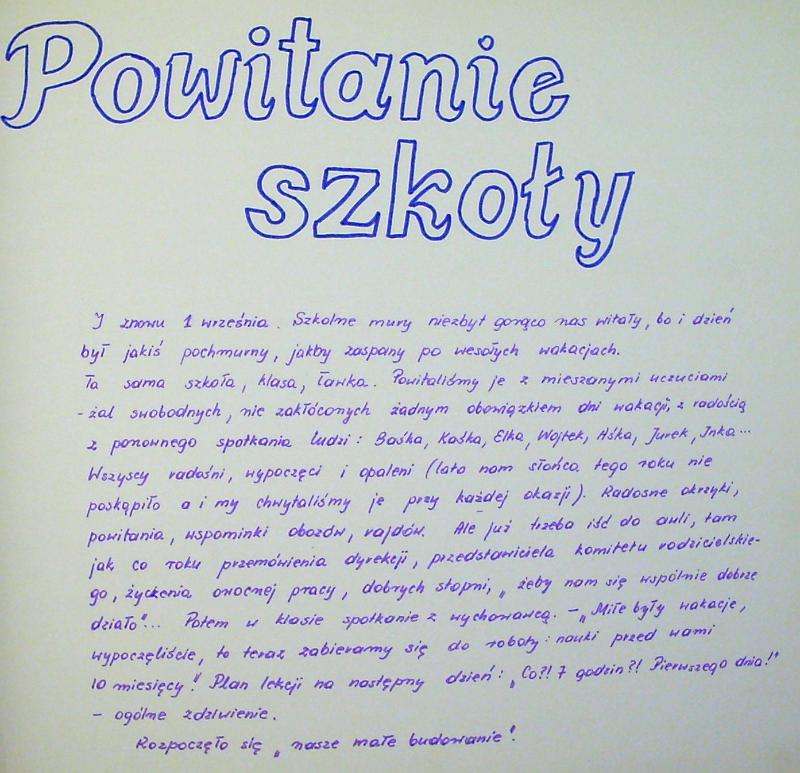 Powitanie
szkoły
I znowu 1 września. Szkolne mury niezbyt gorąco nas witały, bo i dzień
był jakiś pochmurny, jakby zaspany po wesołych wakacjach.
Ta sama szkoła, klasa, ławka. Powitaliśmy je z mieszanymi uczuciami
- żal swobodnych, nie zakłóconych żadnym obowiązkiem dni wakacji, z radością
z ponownego spotkania ludzi: Baśka, Kaśka, Elka, Wojtek, Aśka, Jurek, Inka...
Wszyscy radośni, wypoczęci i opaleni (lato nam słońca tego roku nie
poskąpiło a i my chwytaliśmy je przy każdej okazji). Radosne okrzyki,
powitania, wspominki obozów, rajdów. Ale już trzeba iść do auli, tam
jak co roku przemówienia dyrekcji, przedstawiciela komitetu rodzicielskie-
go, życzenia owocnej pracy, dobrych stopni, „żeby nam się wspólnie dobrze
działo"... Potem w klasie spotkanie z wychowawcą. - „Miłe były wakacje,
wypoczęliście, to teraz zabieramy się do roboty: nauki przed wami
10 miesięcy!" Plan lekcji na następny dzień: „Co?! 7 godzin?! Pierwszego dnia!"
- ogólne zdziwienie.
Rozpoczęło się „nasze małe budowanie".